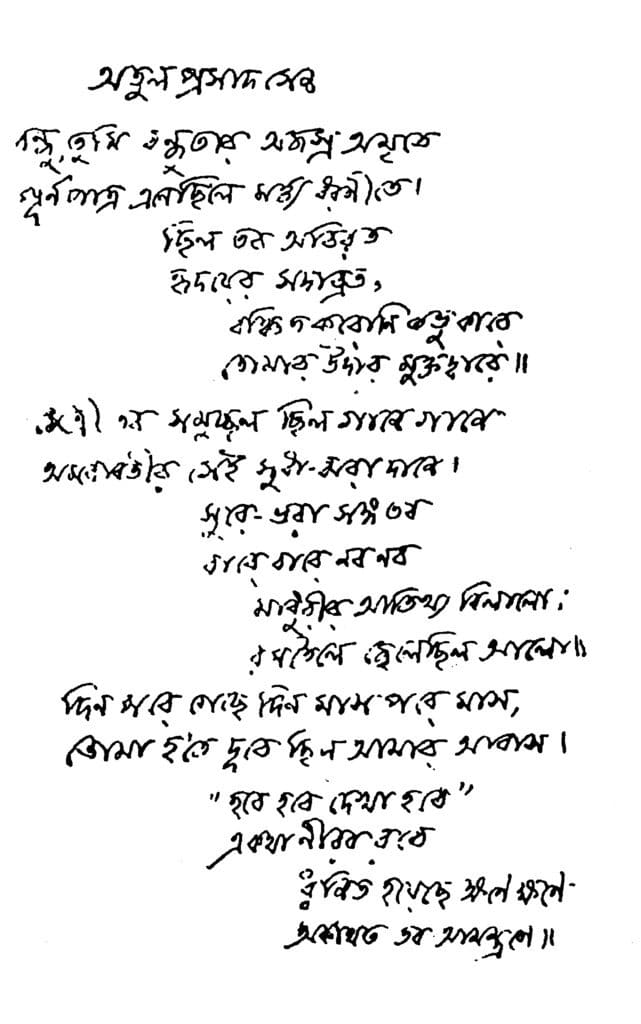 অতুলপ্রসাদ সেন
বন্ধু, তুমি বন্ধুতার অজস্র অমৃতে
পূর্ণপাত্র এনেছিলে মর্ত্য ধরণীতে।
ছিল তব অবিরত
হৃদয়ের সদাব্রত,
বঞ্চিত করোনি কভু কারে
তোমার উদার মুক্তদ্বারে॥
মৈত্রী তব সমুচ্ছল ছিল গানে গানে
অমরাবতীর সেই সুধা-ঝরা দানে।
সুরে-ভরা সঙ্গ তব
বারে বারে নব নব
মাধুরীর আতিথ্য বিলালো;
রসতৈলে জ্বেলেছিল আলো॥
দিন পরে গেছে দিন মাস পরে মাস,
তোমা হতে দূরে ছিল আমার আবাস।
"হবে হবে দেখা হবে"
একথা নীরব রবে
ধ্বনিত হয়েছে ক্ষণে ক্ষণে-
অকথিত তব আমন্ত্রণে॥